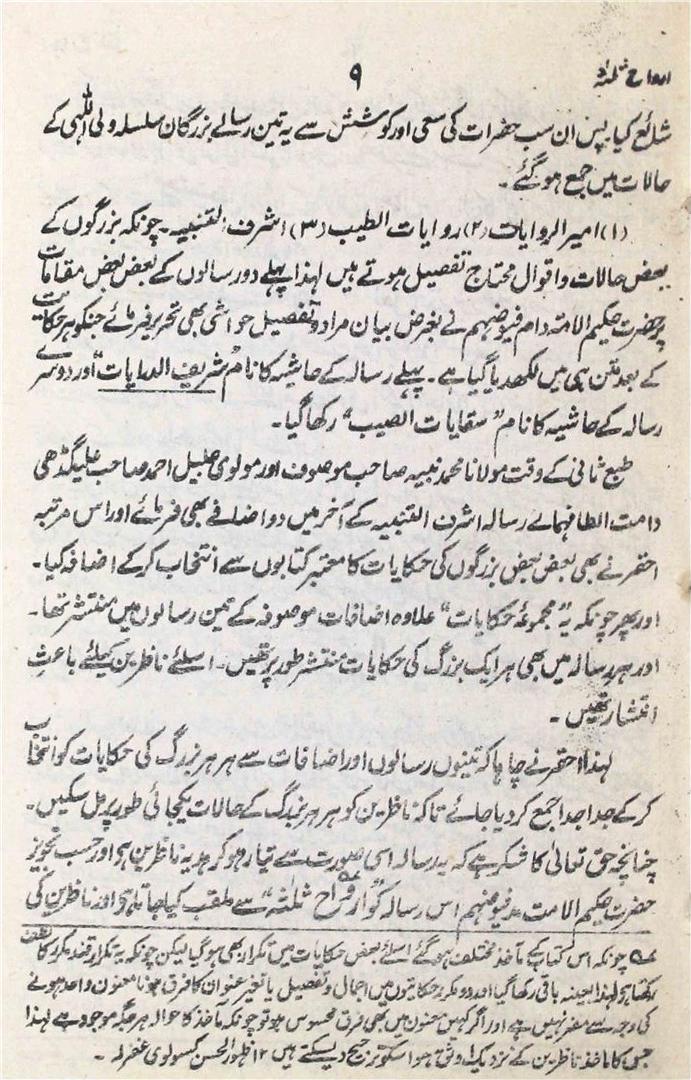 ارواح ثلثہ
۹
شائع کیا، پس ان سب حضرات کی سعی اور کوشش سے یہ تین رسالے بزرگان سلسلہ ولی اللہی کے
حالات میں جمع ہو گئے۔
(۱) امیر الروایات (۲) روایات الطیب (۳) اشرف التنبیہ۔ چونکہ بزرگوں کے
بعض حالات و اقوال محتاج تفصیل ہوتے ہیں لہذا پہلے دو رسالوں کے بعض بعض مقامات
پر حضرت حکیم الامۃ دام فیوضہم نے بغرض بیان مراد و تفصیل حواشی بھی تحریر فرمائے جنکو ہر حکایت
کے بعد متن ہی میں لکھدیا گیا ہے۔ پہلے رسالہ کے حاشیہ کا نام "شریف الدرایات" اور دوسرے
رسالہ کے حاشیہ کا نام "سقایات الصیب" رکھا گیا۔
طبع ثانی کے وقت مولانا محمد نبیہ صاحب موصوف اور مولوی جلیل احمد صاحب علیگڈھی
دامت الطافہما نے رسالہ اشرف التنبیہ کے آخر میں دو اضافے بھی فرمائے اور اس مرتبہ
احقر نے بھی بعض بعض بزرگوں کی حکایات کا معتبر کتابوں سے انتخاب کر کے اضافہ کیا۔
اور پھر چونکہ یہ "مجموعۂ حکایات" علاوہ اضافات موصوفہ کے تین رسالوں میں منتشر تھا۔
اور ہر رسالہ میں بھی ہر ایک بزرگ کی حکایات منتشر طور پر تھیں۔ اسلئے ناظرین کیلئے باعثِ
انتشار تھیں۔
لہذا احقر نے چاہا کہ تینوں رسالوں اور اضافات سے ہر ہر بزرگ کی حکایات کو انتخاب
کر کے جدا جدا جمع کر دیا جائے تاکہ ناظرین کو ہر ہر بزرگ کے حالات یکجائی طور پر مل سکیں۔
چنانچہ حق تعالیٰ کا شکر ہے کہ یہ رسالہ اسی صورت سے تیار ہو کر ہدیہ ناظرین ہی اور حسب تجویز
حضرت حکیم الامت مدفیوضہم اس رسالہ کو "ارواح ثلٰثہ" سے ملقب کیا جاتا ہی اور ناظرین کی
عہ چونکہ اس کتاب کے مآخذ مختلف ہو گئے اسلئے بعض حکایات میں تکرار بھی ہو گیا لیکن چونکہ یہ تکرار قند مکرر کا لطف
رکھتا ہی لہذا بعینہ باقی رکھا گیا اور دو مکرر حکایتوں میں اجمال و تفصیل یا تغیر عنوان کا فرق ہونا معنون واحد ہونے
کی وجہ سے مضر نہیں ہے اور اگر کہیں معنون میں بھی فرق محسوس ہو تو چونکہ مآخذ کا حوالہ ہر جگہ موجود ہے لہذا
جس کا ماخذ ناظرین کے نزدیک اوثق ہو اسکو ترجیح دیسکتے ہیں ۱۲ ظہور الحسن کسولوی غفرلہ۔